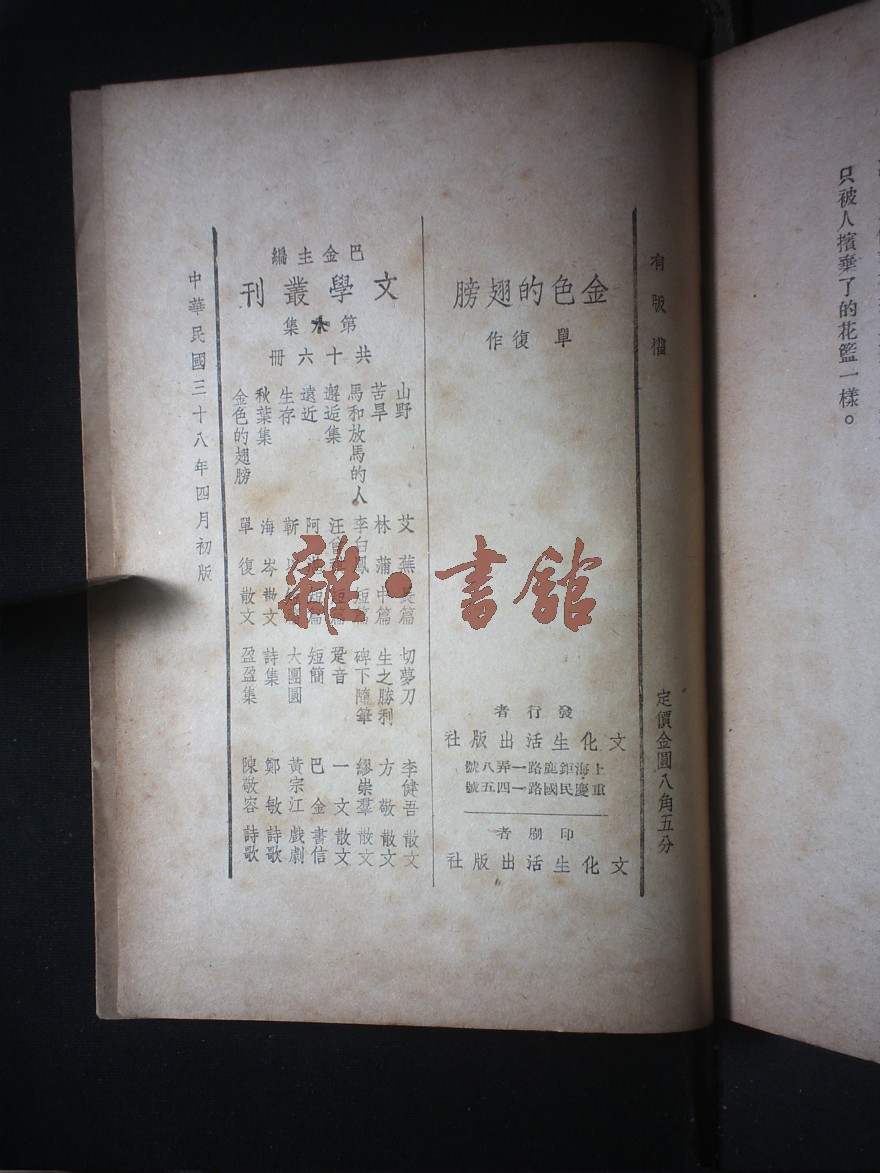 只被人擯棄了的花籃一樣。
有版權
定價金圓八角五分
金色的翅膀
單復作
發行者
文化生活出版社
上海鉅鹿路一弄八號
重慶民國路一四五號
印刷者
文化生活出版社
巴金主編
文學叢刊
第集
共十六冊
山野 艾蕪 長篇
苦旱 林蒲 中篇
馬和放馬的人 李白鳳 短篇
邂逅集 汪 短篇
遠近 阿 短篇
生存 靳
秋葉集 海岑 散文
金色的翅膀 單復 散文
切夢刀 李健吾 散文
生之勝利 方敬 散文
碑下隨筆 繆崇羣 散文
跫音 一文 散文
短簡 巴金 書信
大團圓 黃宗江 戲劇
詩集 鄭敏 詩歌
盈盈集 陳敬容 詩歌
中華民國三十八年四月初版
雜·書館